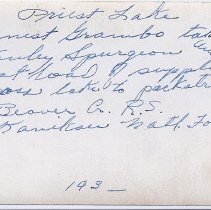 Priest Lake
nest Grambo tak
nley Spurgeon and
at load of suppli
oss lake to packstri
Beaver Cr. R.S.
Kaniksu Natl. Fo
193_